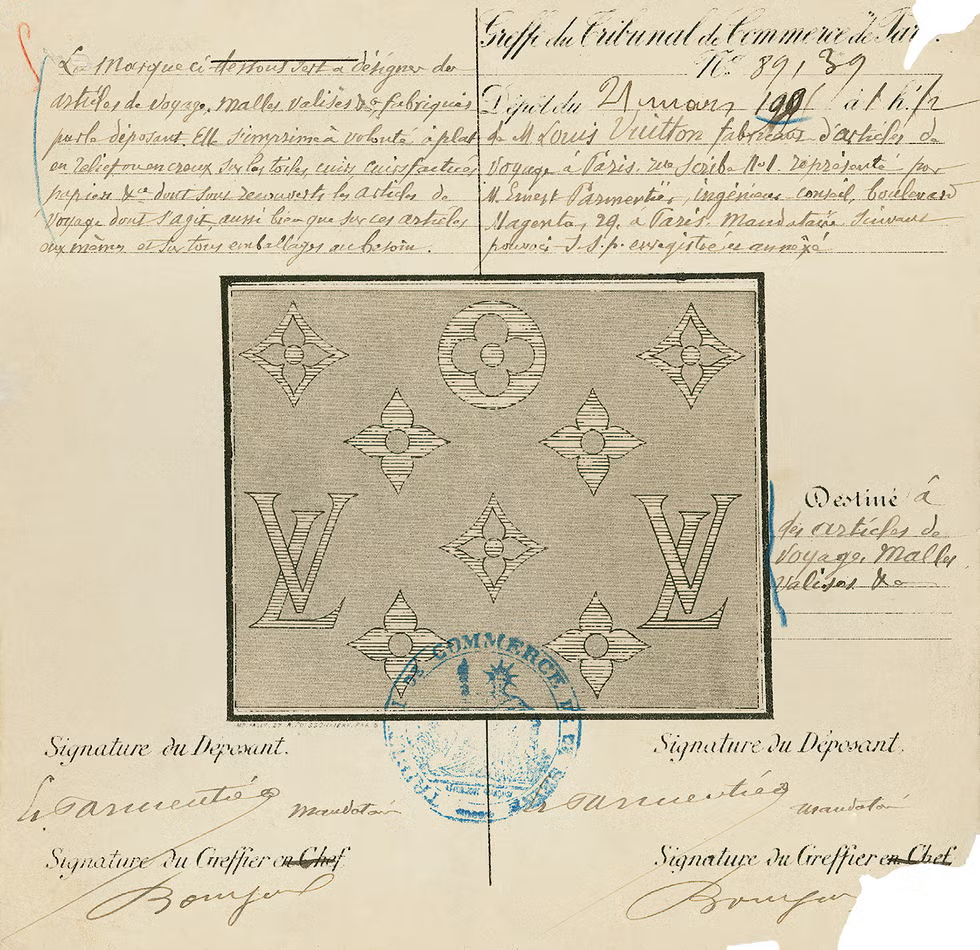 Greffe du Tribunal de Commerce de Par
N° 89,139
Dépôt du 21 mars 190 à 1 h. 1/2
de M. Louis Vuitton fabricant d'articles de
voyage à Paris. rue Scribe N° 1. représenté par
M. Ernest Parmentier, ingénieur conseil, boulevard
Magenta, 29. à Paris. mandataire suivant
pouvoir s.s.p. enregistré et annexé
La Marque ci-dessous sert à désigner des
articles de voyage, malles, valises &a fabriqués
par le déposant. Elle s'imprime à volonté à plat
en relief ou en creux sur les toiles, cuirs, cuirs factices
papiers &ca dont sont recouverts les articles de
voyage dont s'agit, aussi bien que sur ces articles
eux mêmes et sur tous emballages au besoin.
LV
LV
Destiné à
des articles de
voyage, Malles
valises &a
TRIBUNAL DE COMMERCE DE LA SEINE
Signature du Déposant.
Signature du Déposant.
E. Parmentier mandataire
E. Parmentier mandataire
Signature du Greffier en Chef
Signature du Greffier en Chef